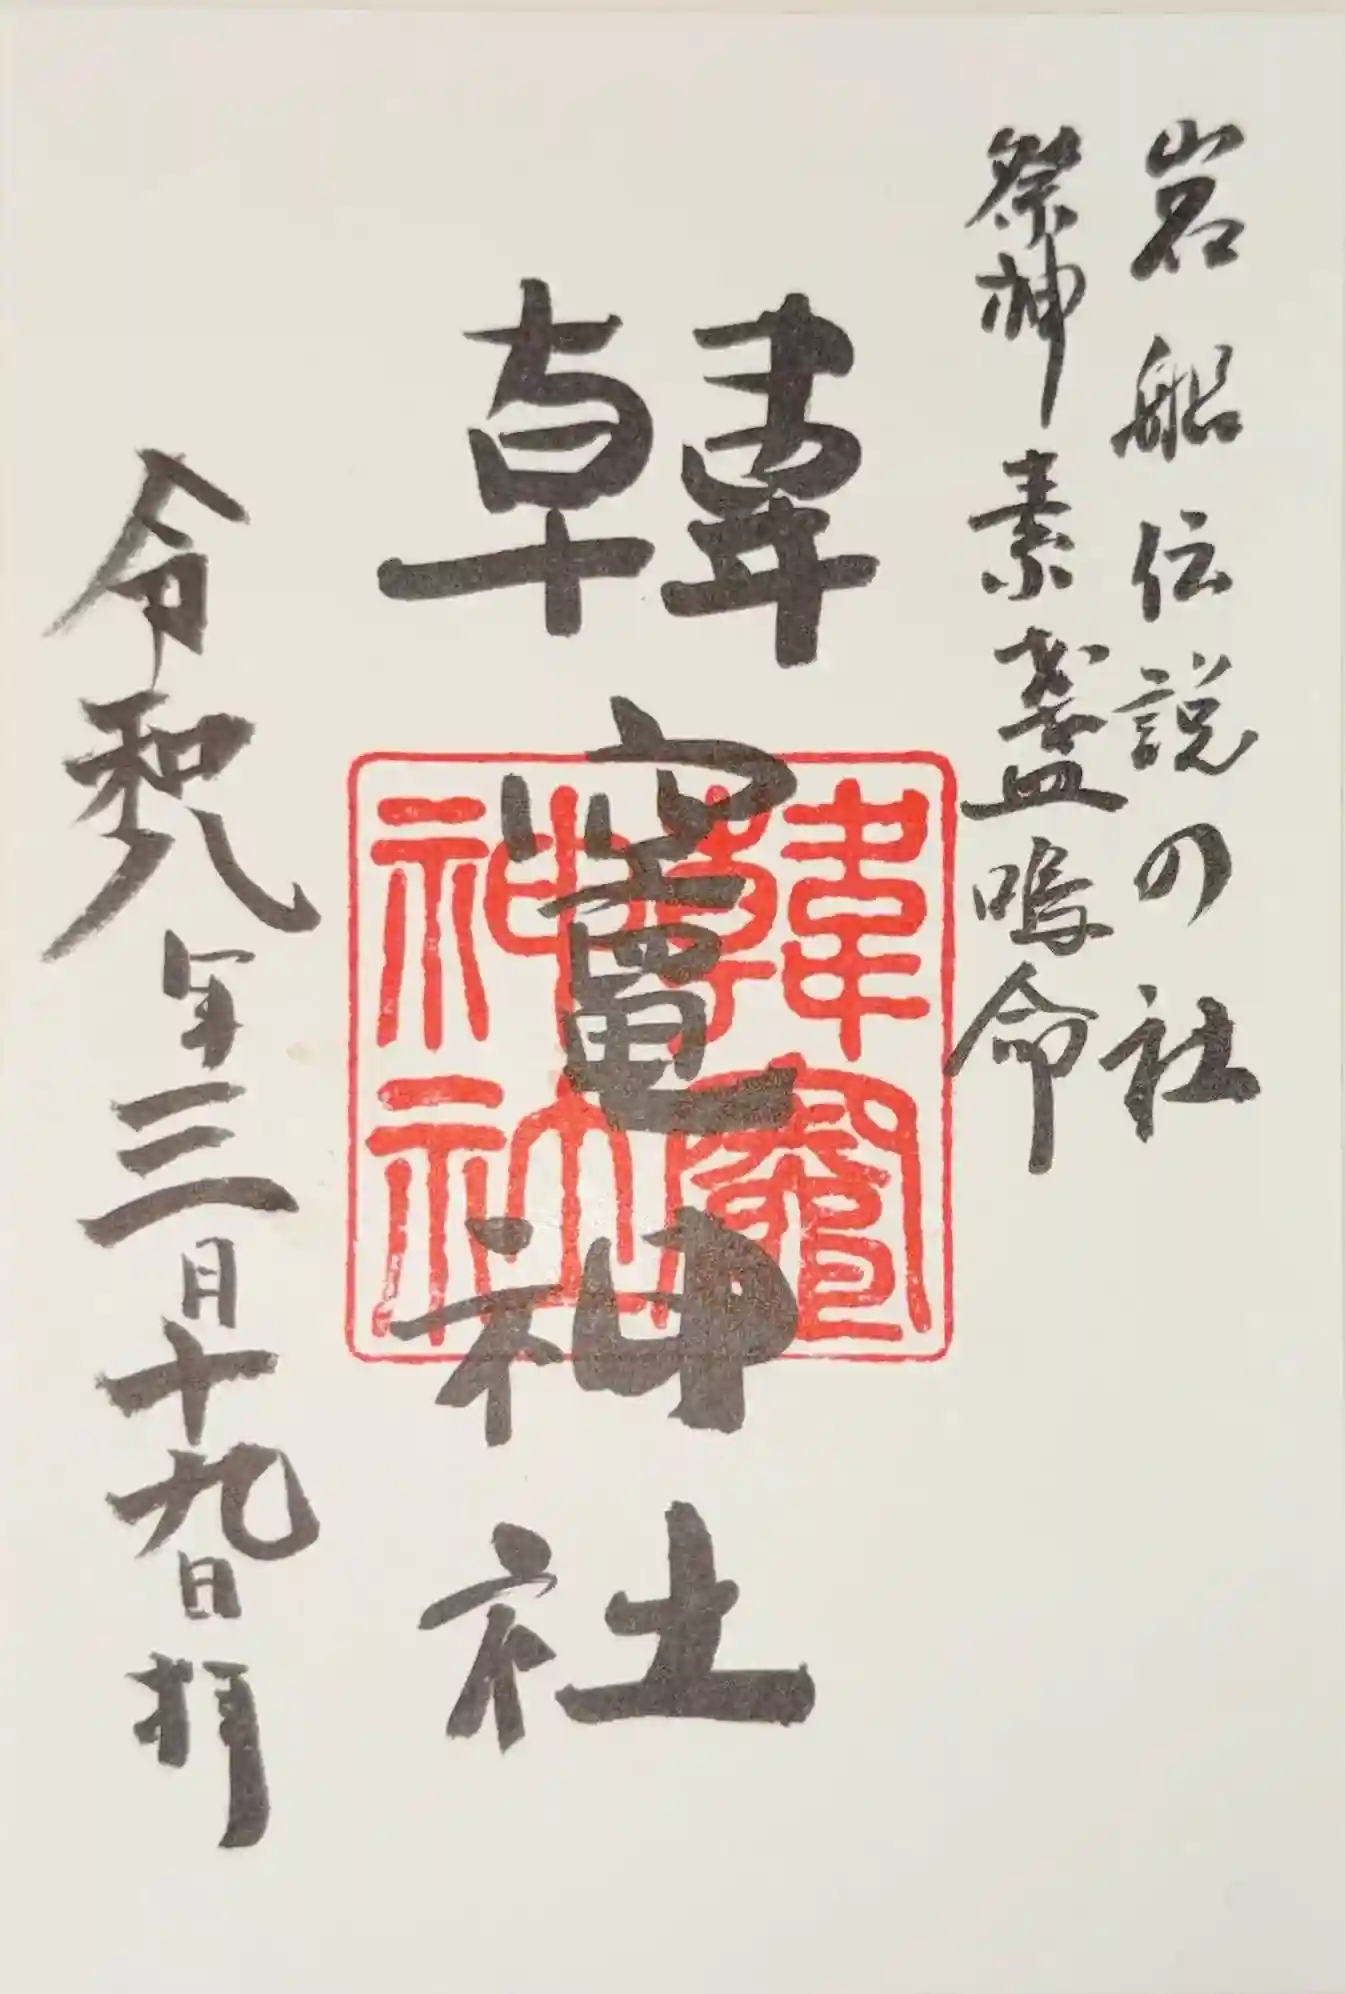 岩船伝説の社
祭神 素盞嗚命
韓竃神社
韓竃神社
令和八年三月十九日拝